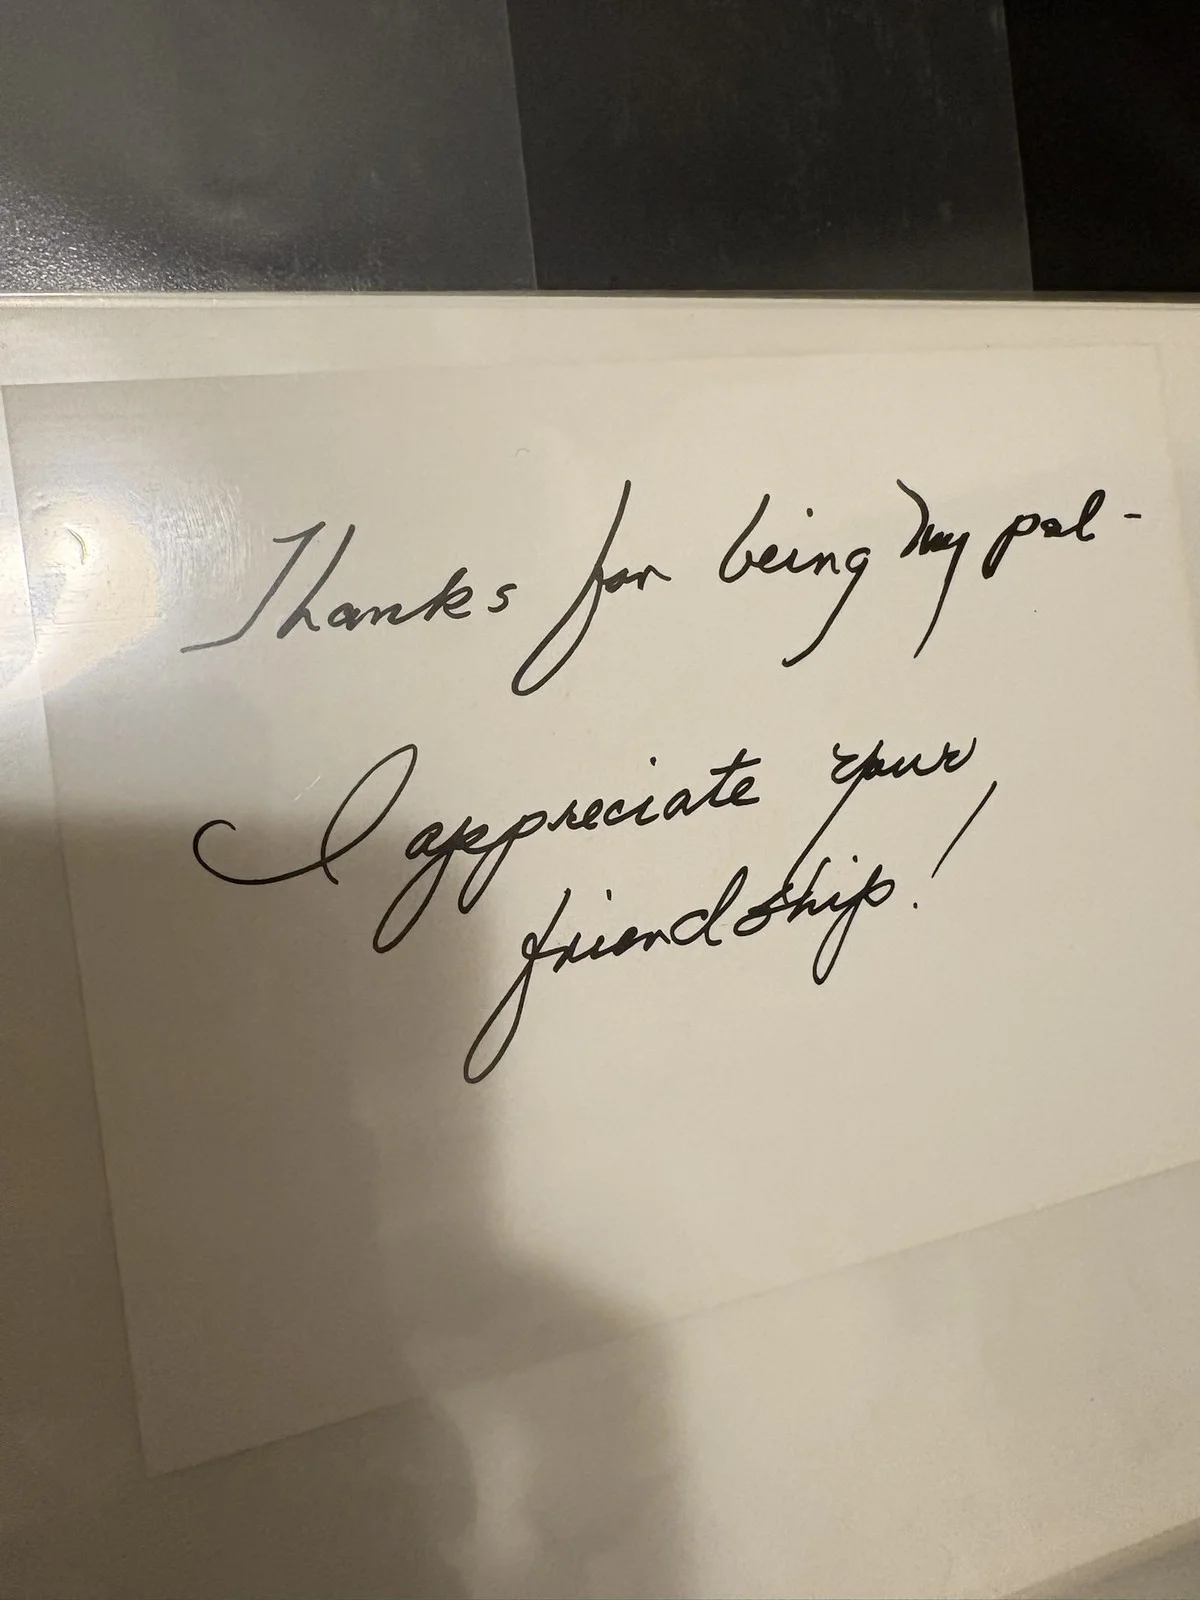 Thanks for being my pal-
I appreciate your
friendship!